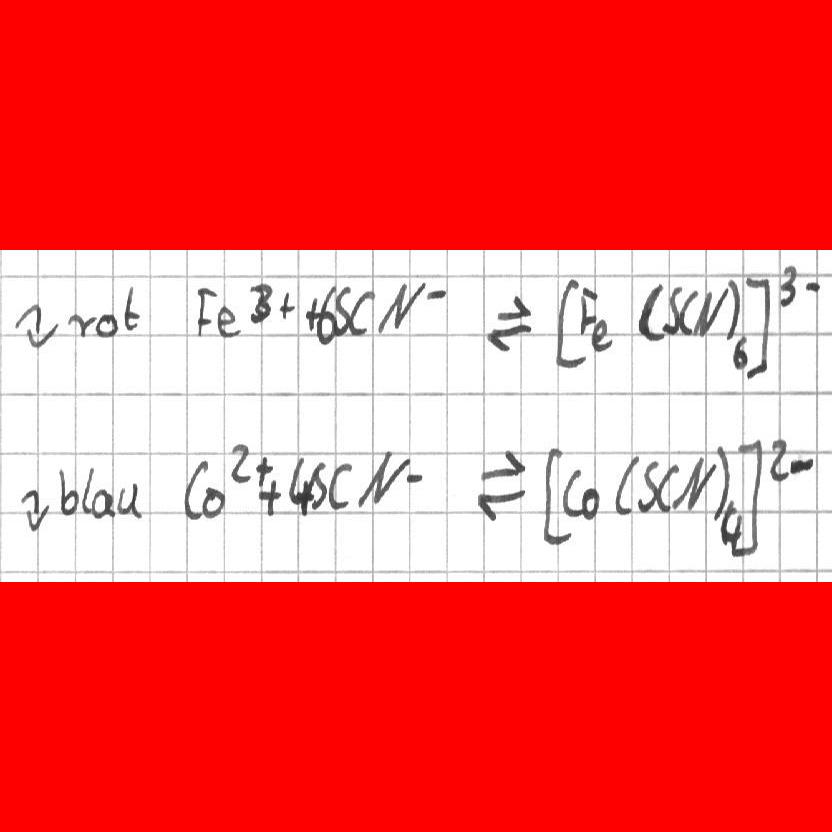 ↓ rot Fe³⁺ + 6SCN⁻ ⇌ [Fe(SCN)₆]³⁻
↓ blau Co²⁺ + 4SCN⁻ ⇌ [Co(SCN)₄]²⁻